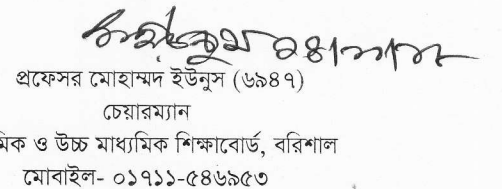 প্রফেসর মোহাম্মদ ইউনুস (৬৯৪৭)
চেয়ারম্যান
ও উচ্চ মাধ্যমিক শিক্ষাবোর্ড, বরিশাল
মোবাইল- ০১৭১১-৫৪৬৯৫৩